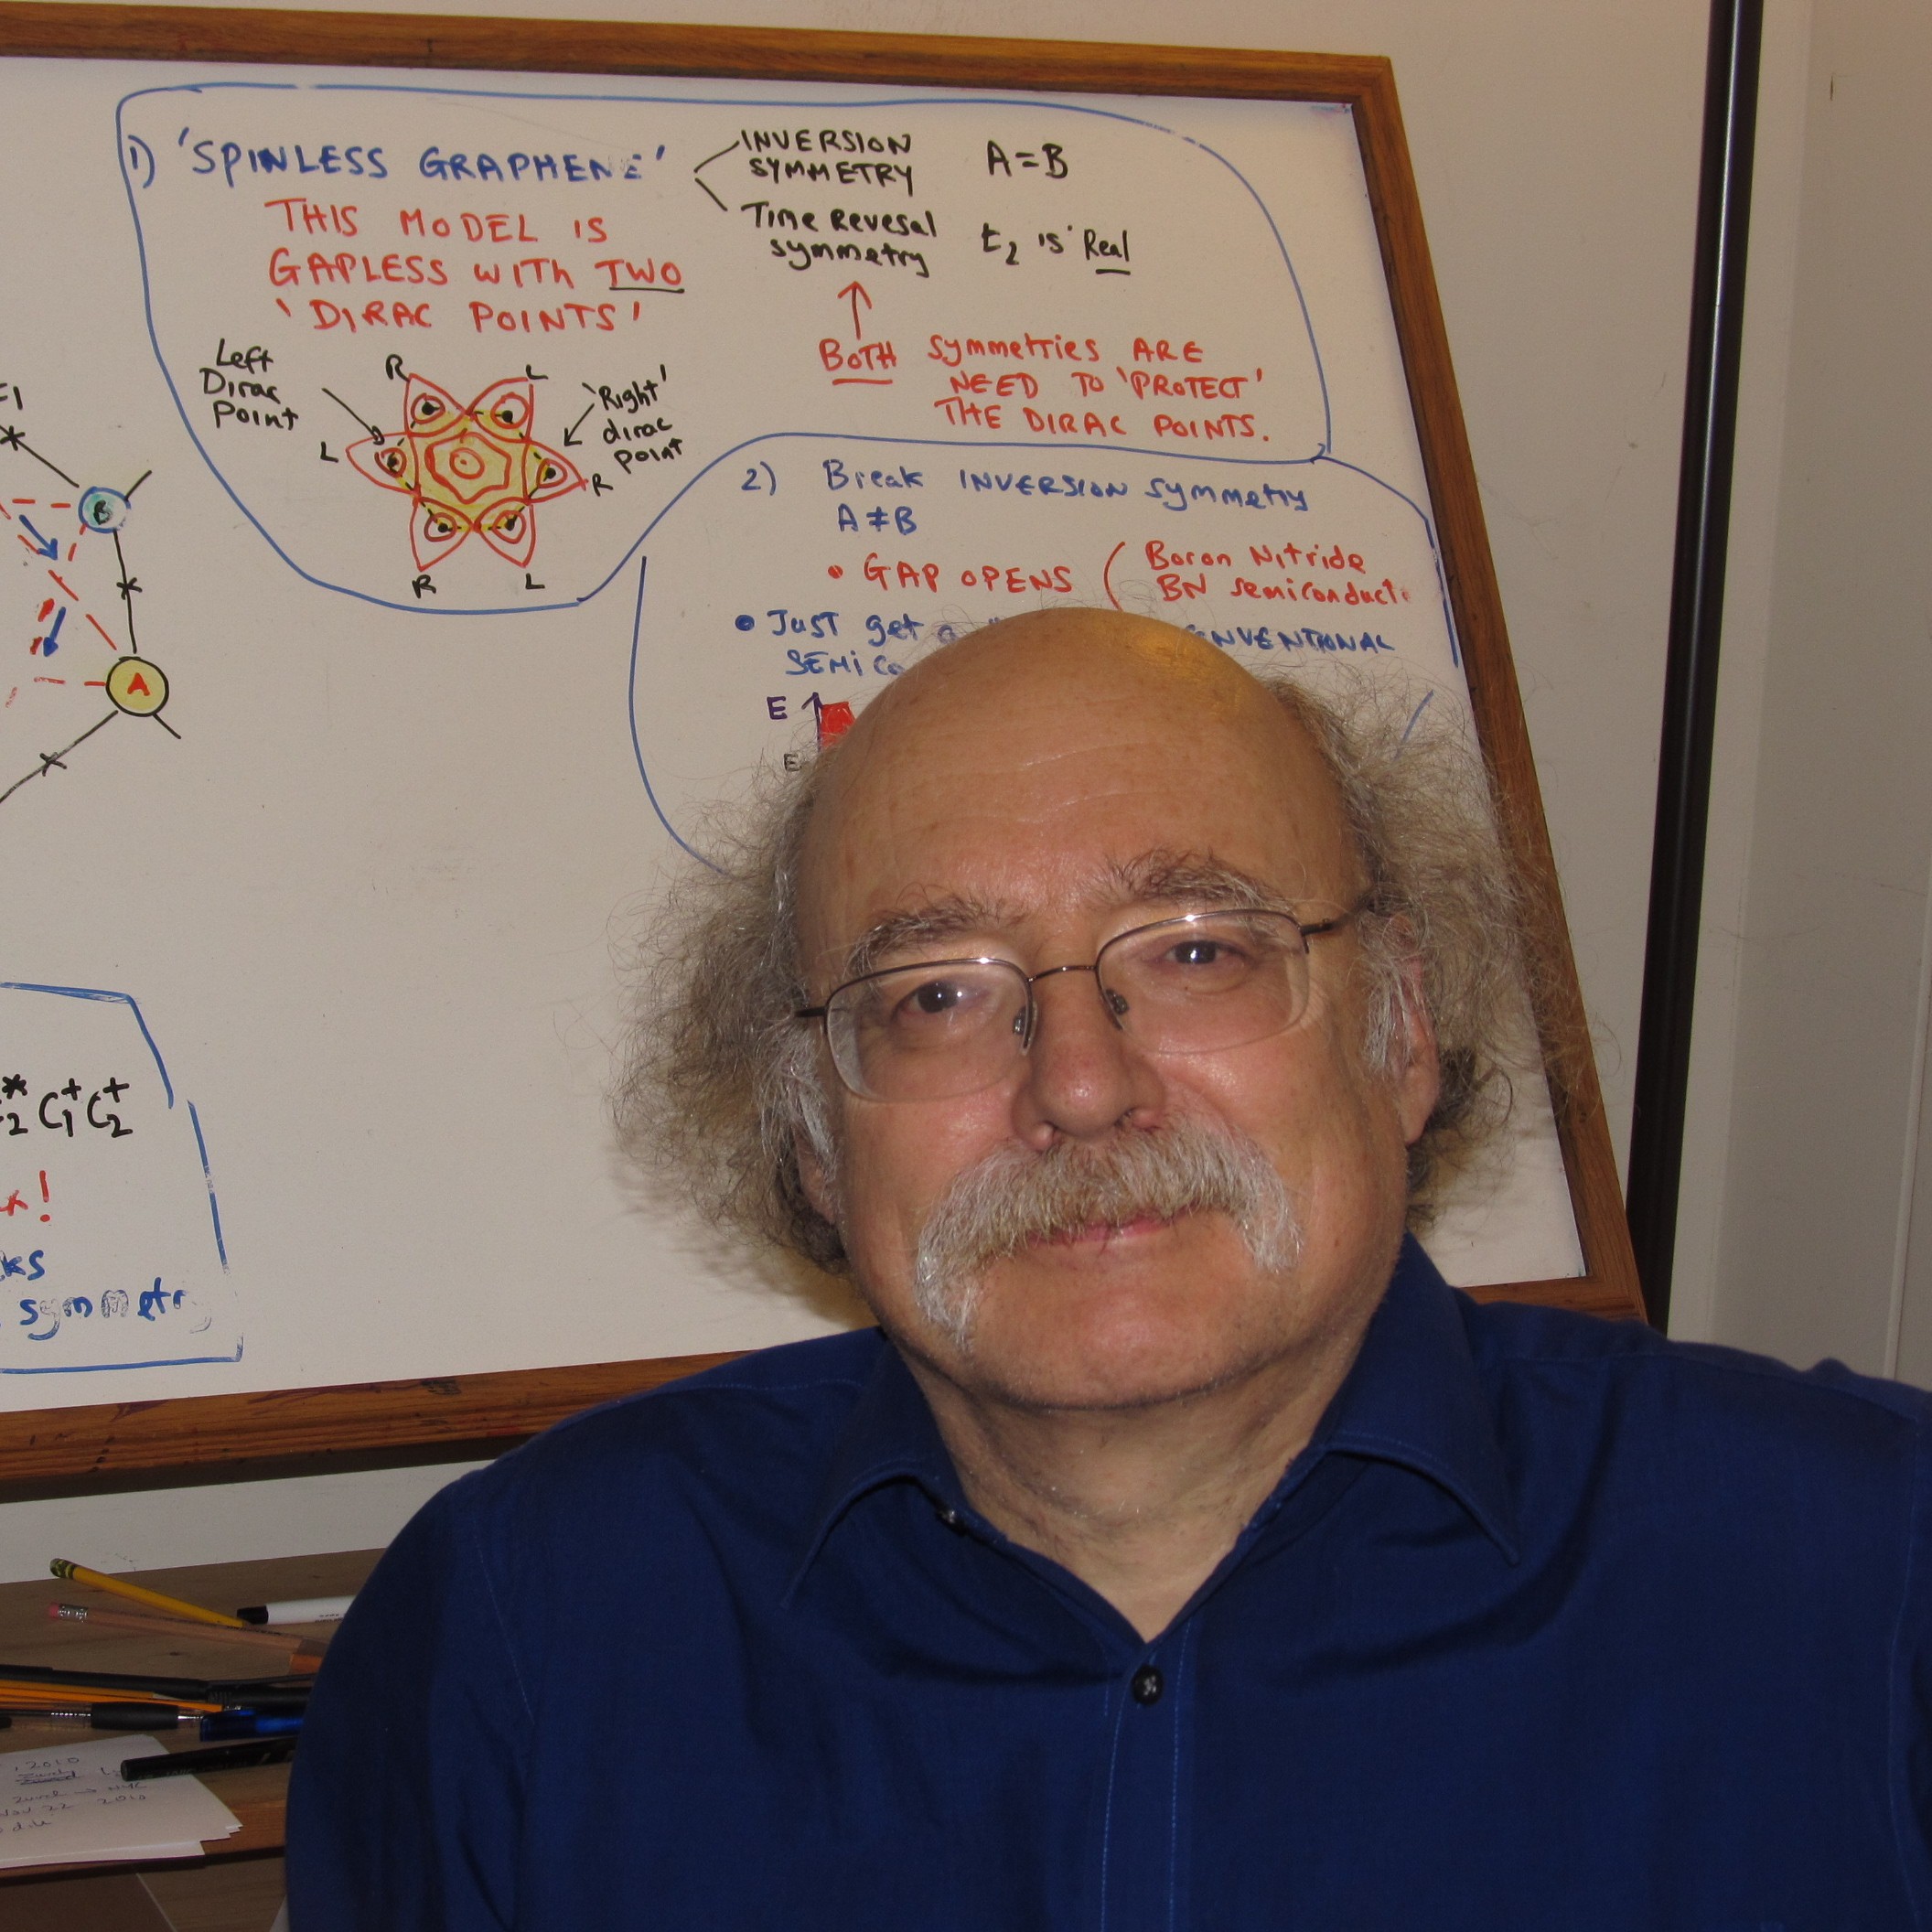 1) 'SPINLESS GRAPHENE'
INVERSION
SYMMETRY
A=B
Time Revesal
symmetry
t₂ is Real
THIS MODEL IS
GAPLESS WITH TWO
'DIRAC POINTS'
BOTH symmetries ARE
NEED TO 'PROTECT'
THE DIRAC POINTS.
Left
Dirac
Point
R
L
'Right'
dirac
point
L
R
R
L
2) Break INVERSION symmetry
A≠B
• GAP OPENS
Boron Nitride
BN semiconduct
• Just get
SEMICO
E
E
B
A
C₁⁺C₂⁺
symmetr
2010
Nov 22 2010